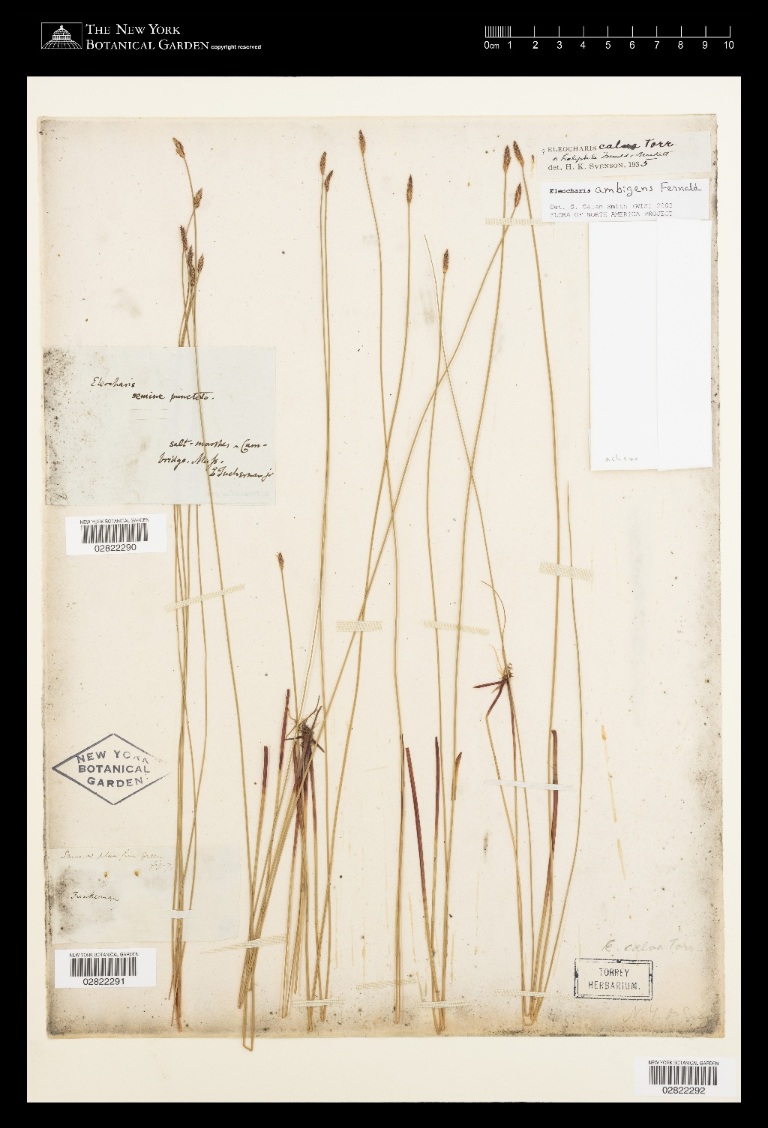 THE NEW YORK
BOTANICAL GARDEN copyright reserved
0cm 1 2 3 4 5 6 7 8 9 10
ELEOCHARIS calva Torr
det. H. K. SVENSON, 193
Eleocharis ambigens Fernald
Det. S. Galen Smith (WIS) 2001
FLORA OF NORTH AMERICA PROJECT
Eleocharis
semine punctato.
salt-marshes, Cam-
bridge. Mass.
E Tuckerman jr
achene
NEW YORK BOTANICAL GARDEN
02822290
NEW YORK
BOTANICAL
GARDEN
Tuckerman
NEW YORK BOTANICAL GARDEN
02822291
E. calva Torr
TORREY
HERBARIUM.
NEW YORK BOTANICAL GARDEN
02822292